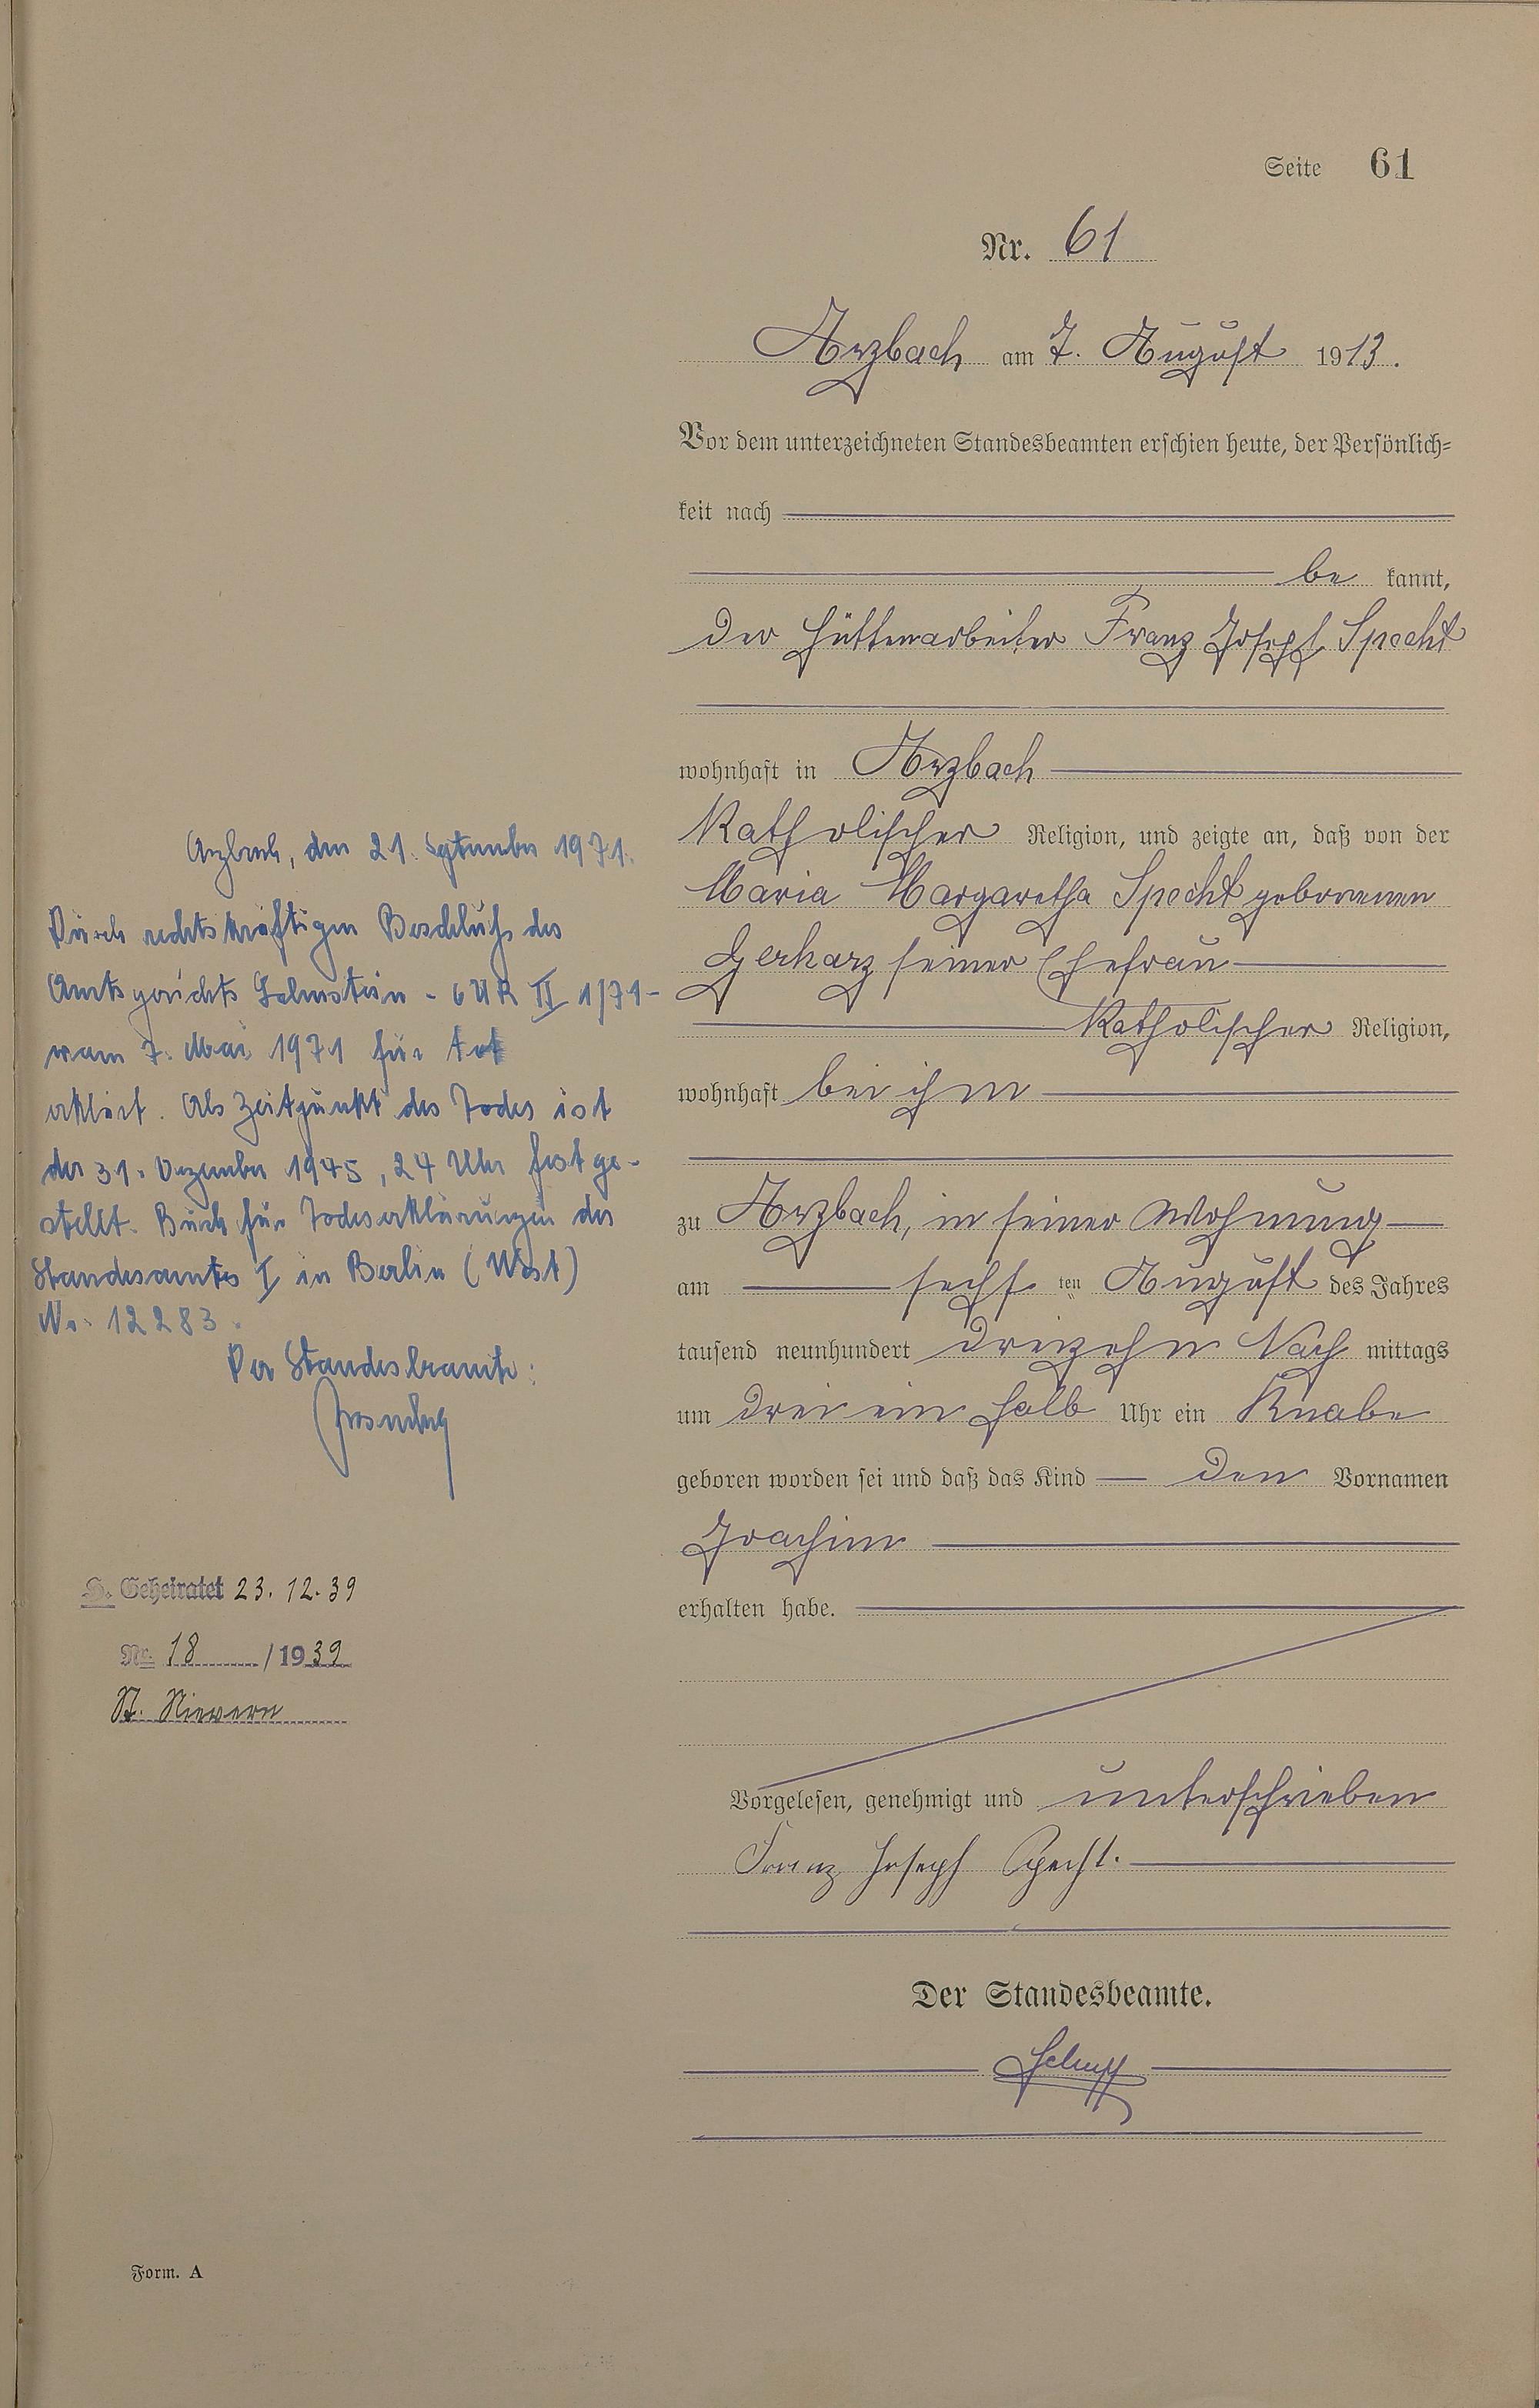 Seite 61
Nr. 61
Arzbach am 7. August 1913.
Vor dem unterzeichneten Standesbeamten erschien heute, der Persönlich-
keit nach
be kannt,
der Hüttenarbeiter Franz Joseph Specht
wohnhaft in Arzbach
Katholischer Religion, und zeigte an, daß von der
Maria Margaretha Specht geborenen
Gerharz seiner Ehefrau
Katholischer Religion,
wohnhaft bei ihm
zu Arzbach, in seiner Wohnung
am sechsten August des Jahres
tausend neunhundert dreizehn Nach mittags
um drei ein halb Uhr ein Knabe
geboren worden sei und daß das Kind den Vornamen
Joachim
erhalten habe.
Vorgelesen, genehmigt und unterschrieben
Franz Joseph Specht.
Der Standesbeamte.
Arzbach, den 21. September 1971.
Durch rechtskräftigen Beschluß des
Amtsgerichts Lahnstein - 6 UR II 1/71 -
vom 7. Mai 1971 für tot
erklärt. Als Zeitpunkt des Todes ist
der 31. Dezember 1945, 24 Uhr festge-
stellt. Buch für Todeserklärungen des
Standesamtes I in Berlin (West)
Nr. 12283.
Der Standesbeamte:
H. Geheiratet 23.12.39
Nr. 18 /1939
St. Nievern
Form. A